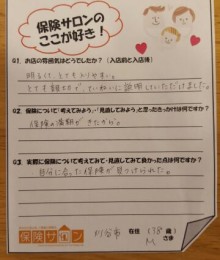 保険サロンの
ここが好き!
Q1. お店の雰囲気はどうでしたか?(入店前と入店後)
明るく、とても入りやすい。
とても親切で、ていねいに説明していただけました。
Q2. 保険について「考えてみよう」・「見直してみよう」と思ったきっかけは何ですか?
保険の満期がきたから。
Q3. 実際に保険について考えてみて・見直してみて良かった点は何ですか?
自分に合った保険が見つけられた。
保険サロン
刈谷市 在住 (38歳)
M さま